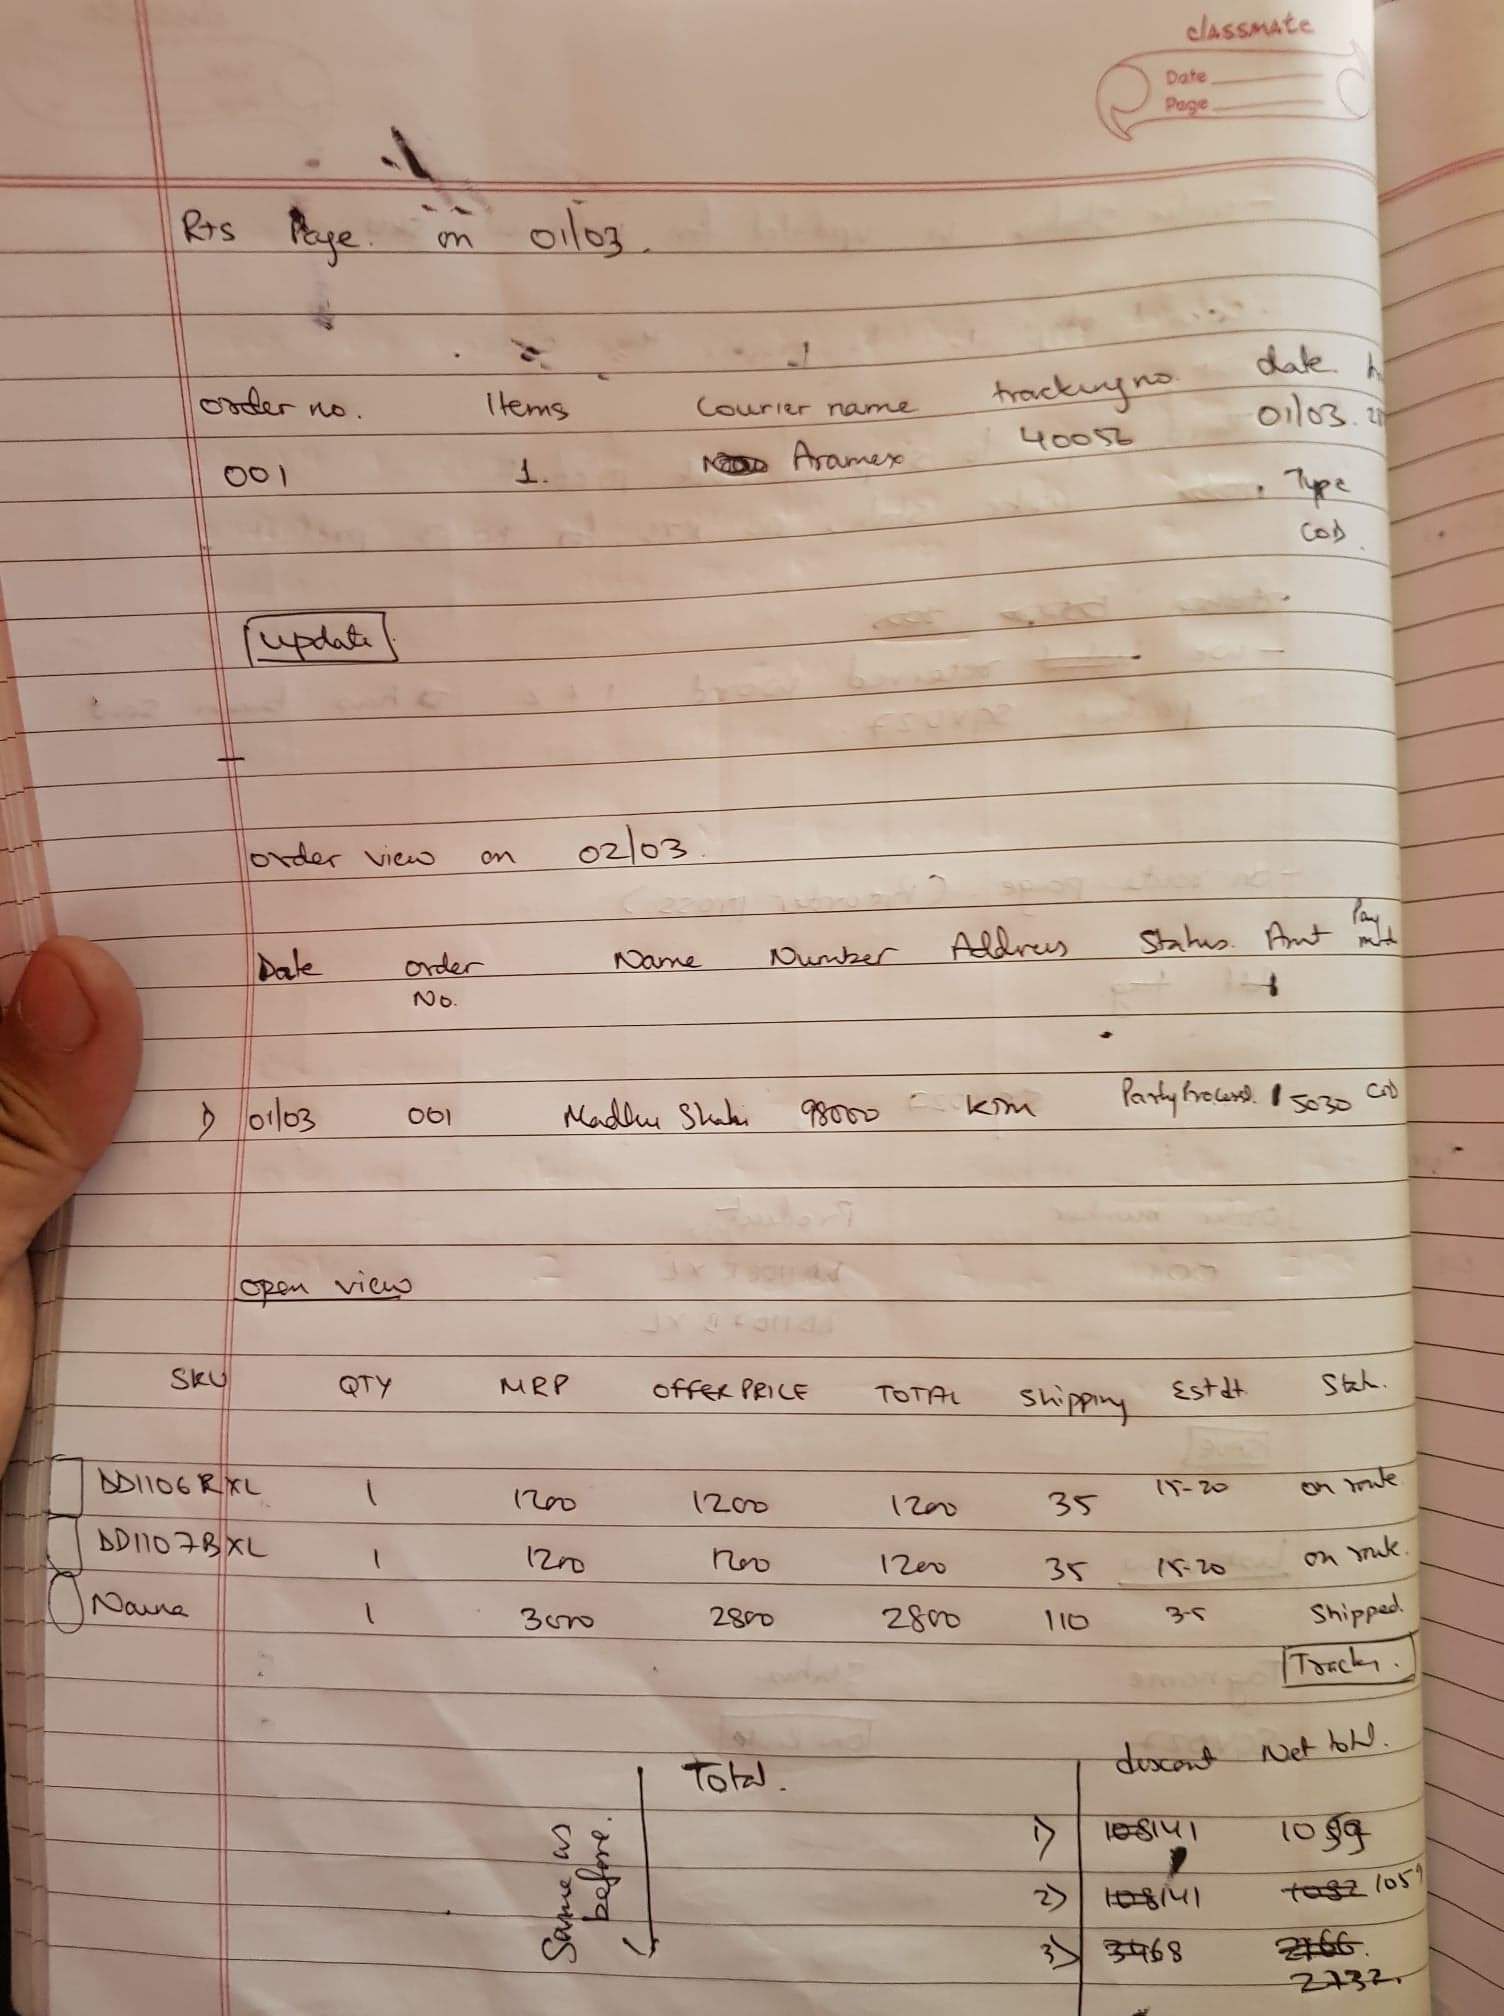 classmate
Date
Page
Rts Page. on 01/03.
order no. Items Courier name tracking no. date
001 1. Aramex 40056 01/03.
Type
COD.
update
order view on 02/03.
Date order No. Name Number Address Status. Amt Pay
1) 01/03 001 Madhu 98000 KTM 5030 COD
open view
SKU QTY MRP OFFER PRICE TOTAL Shipping Est dt.
DD1106RXL 1 1200 1200 1200 35 15-20 on route.
DD1107BXL 1 1200 1200 1200 35 15-20 on route.
Naina 1 3000 2800 2800 110 3-5 Shipped.
Track.
Same as before.
Total. Net
1) 141
2) 141 1059
3) 68
2732.